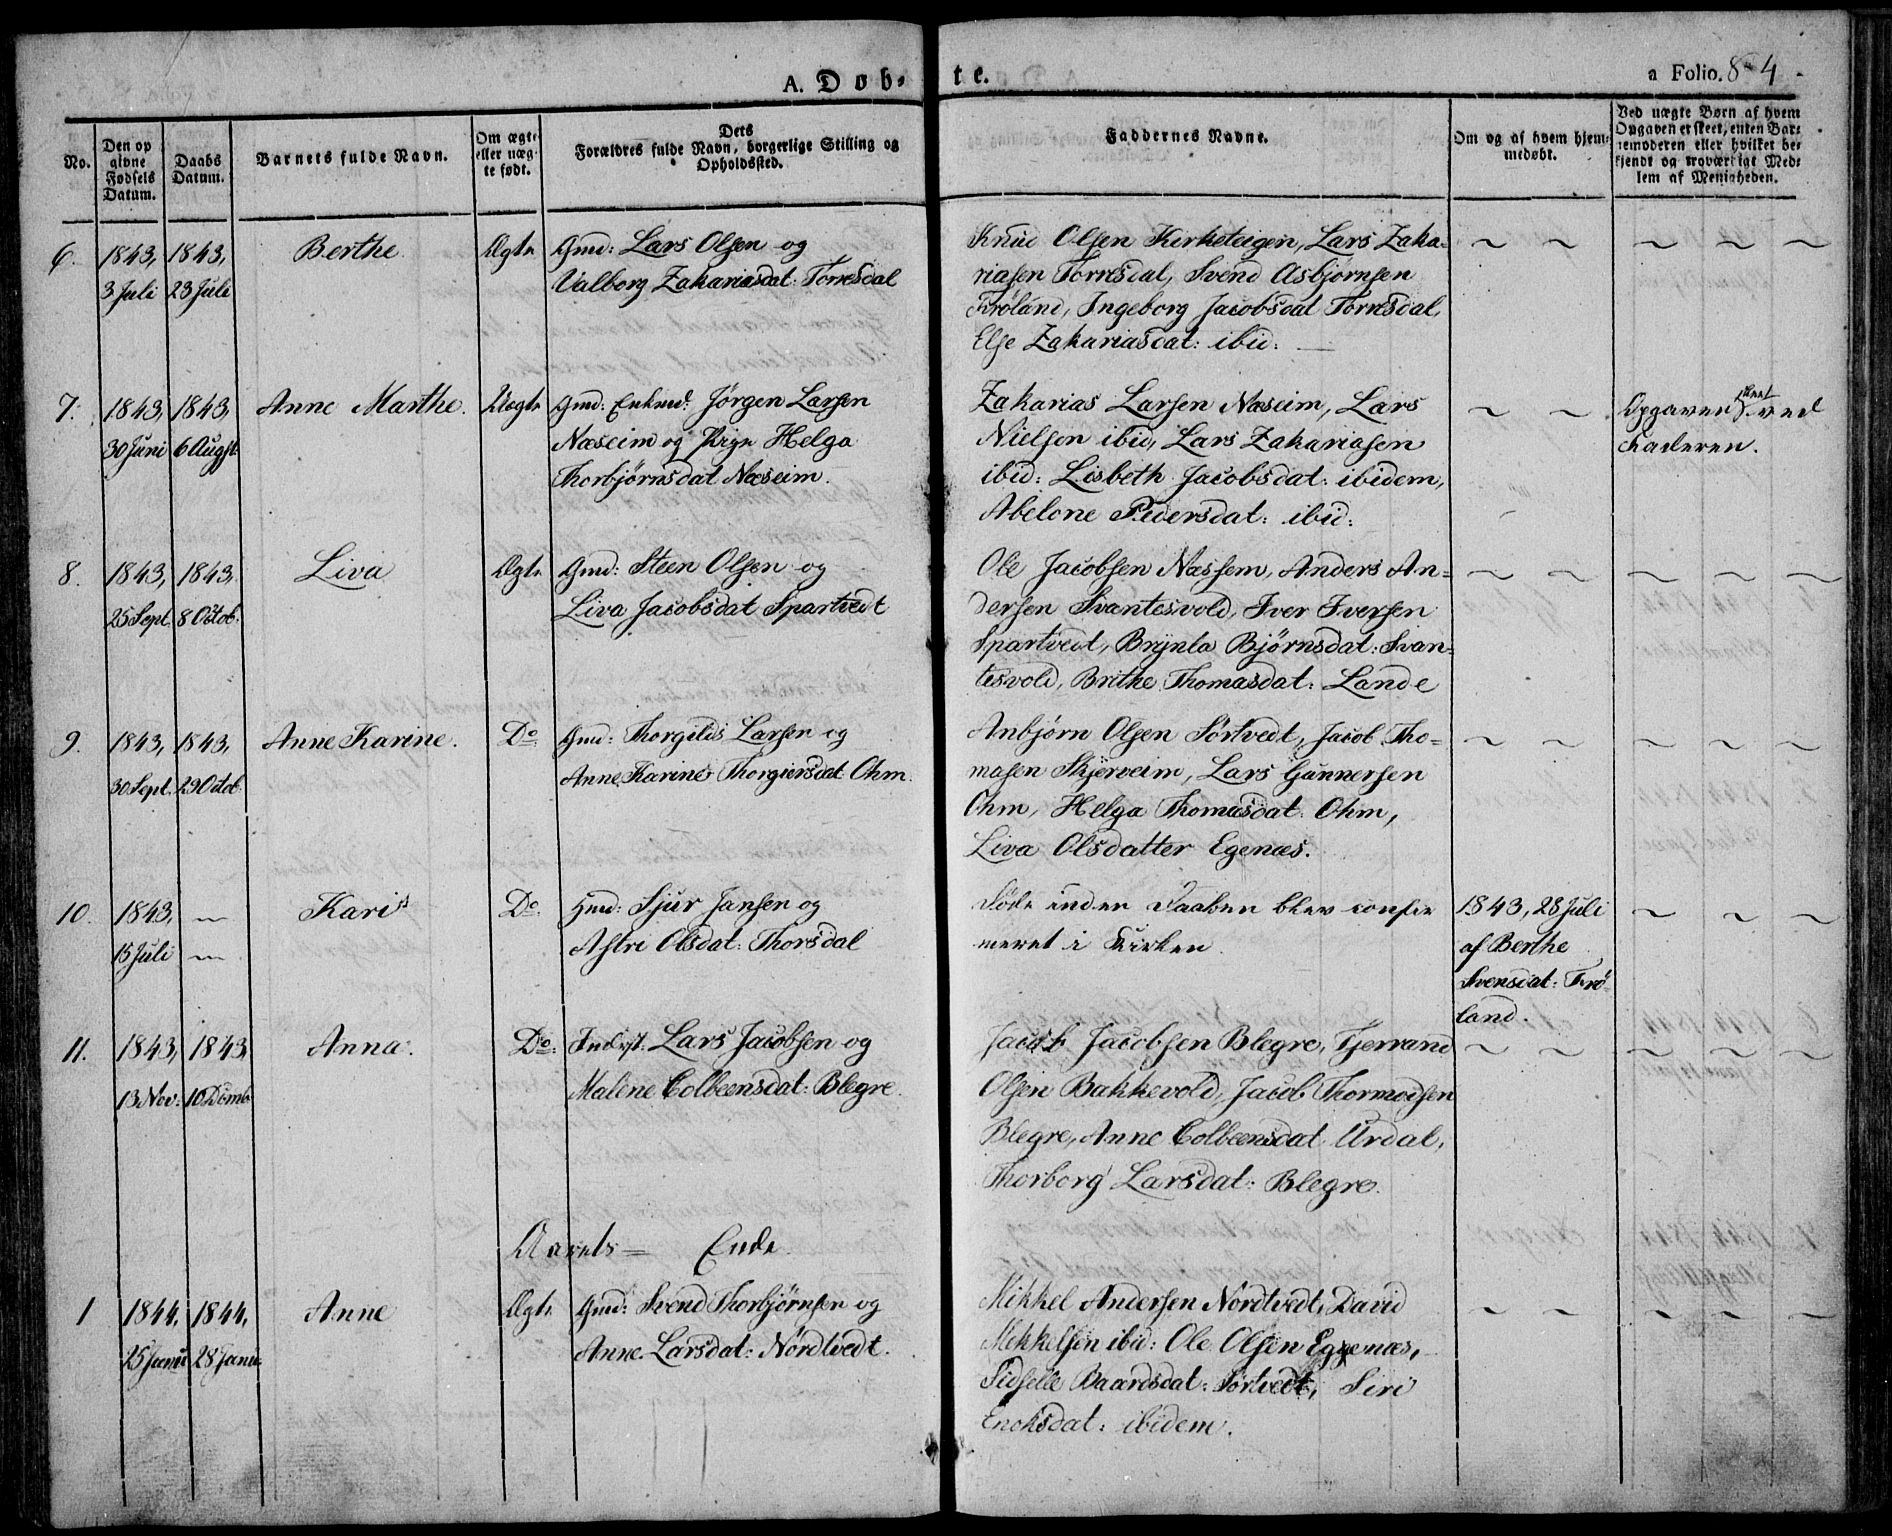 A. Døb-
te.
a Folio. 84.
No.
Den op
givne
Fødsels
Datum.
Daabs
Datum.
Barnets fulde Navn.
Om ægte
eller uæg-
te født.
Dets
Forældres fulde Navn, borgerlige Stilling og
Opholdssted.
Faddernes Navne.
Om og af hvem hjem-
medøbt.
Ved uægte Børn af hvem
Opgaven er skeet, enten Bar-
nemoderen eller hvilket be-
kjendt og troværdigt Med-
lem af Menigheden.
6. 1843, 1843, Berthe. Ægte Gmd: Lars Olsen og
3 Juli 23 Juli Valborg Zakariasdat: Torresdal
Knud Olsen Kirketeigen, Lars Zaka-
riasen Torresdal, Svend Asbjørnsen
Frøland, Ingeborg Jacobsdat Torresdal,
Else Zakariasdat: ibid:
7. 1843, 1843, Anne Marthe. Uægte Gmd: Enkmd: Jørgen Larsen
30 Juni 6 Augst: Næseim og Pige Helga
Thorbjørnsdat Næseim.
Zakarias Larsen Næseim, Lars
Nielsen ibid, Lars Zakariasen
ibid: Lisbeth Jacobsdat: ibidem,
Abelone Pedersdat: ibid:
Opgaven skeet ved
Faderen.
8. 1843, 1843, Liva Ægte Gmd: Steen Olsen og
25 Sept. 8 Octob. Liva Jacobsdat Spartvedt
Ole Jacobsen Næssem, Anders An-
dersen Svantesvold, Iver Iversen
Spartvedt, Brynla Bjørnsdat: Svan-
tesvold, Brithe Thomasdat: Lande
9. 1843, 1843, Anne Karine. Do Gmd: Thorgilds Larsen og
30 Sept. 29 Octob. Anne Karine Thorgiersdat Ohm.
Anbjørn Olsen Sørtvedt, Jacob Tho-
masen Skjerveim, Lars Gunnersen
Ohm, Helga Thomasdat: Ohm,
Liva Olsdatter Egenæs.
10. 1843, — Kari Do. Gmd: Sjur Jansen og
15 Juli — Astri Olsdat: Thorsdal
Døde inden Daaben blev confir
meret i Kirken.
1843, 28 Juli
af Berthe
Svensdat: Frø-
land.
11. 1843, 1843, Anna. Do: Inderst: Lars Jacobsen og
13 Nov: 10 Dcmb Malene Colbeensdat: Blegre.
Jacob Jacobsen Blegre, Tjerrand
Olsen Bakkevold, Jacob Thormodsen
Blegre, Anne Colbeensdat. Urdal,
Thorborg Larsdat: Blegre.
Aarets Ende.
1 1844, 1844, Anne Ægte Gmd: Svend Thorbjørnsen og
25 Janu 28 Janu. Anne Larsdat: Nordtvedt.
Mikkel Andersen Nordtvedt, David
Mikkelsen ibid: Ole Olsen Eggenæs,
Sidselle Baardsdat: Sørtvedt, Siri
Enoksdat: ibidem.